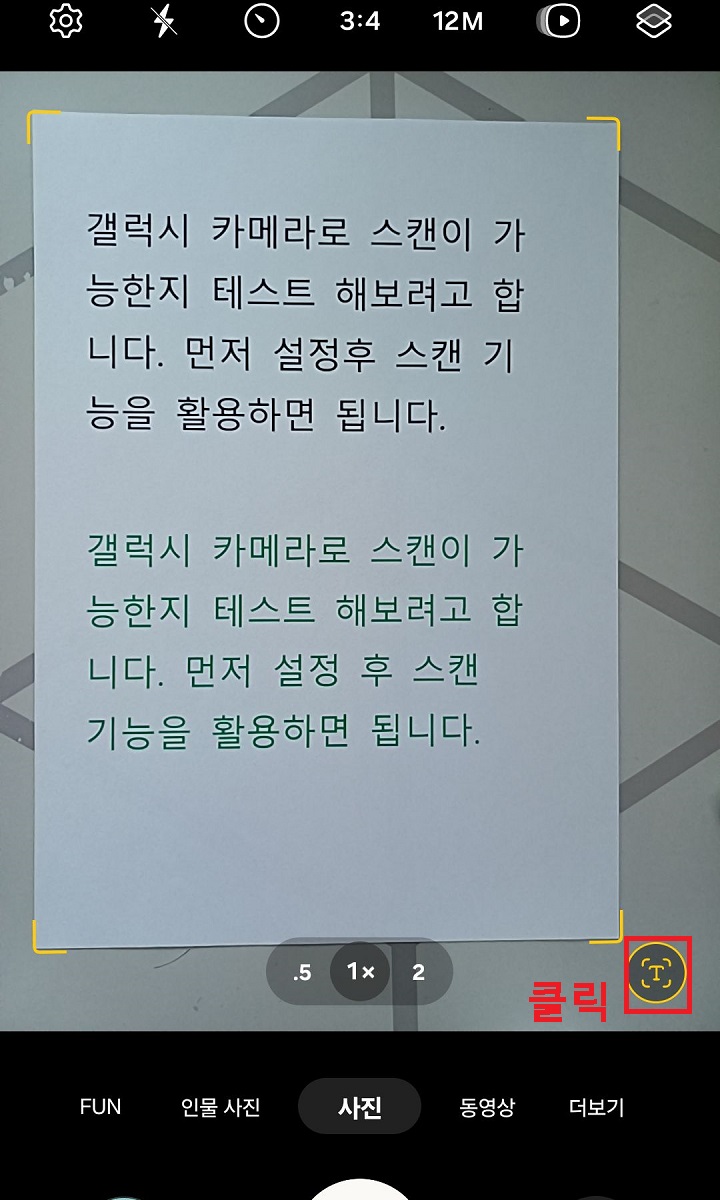 3:4 12M
갤럭시 카메라로 스캔이 가
능한지 테스트 해보려고 합
니다. 먼저 설정후 스캔 기
능을 활용하면 됩니다.
갤럭시 카메라로 스캔이 가
능한지 테스트 해보려고 합
니다. 먼저 설정 후 스캔
기능을 활용하면 됩니다.
.5 1× 2
T
클릭
FUN 인물 사진 사진 동영상 더보기